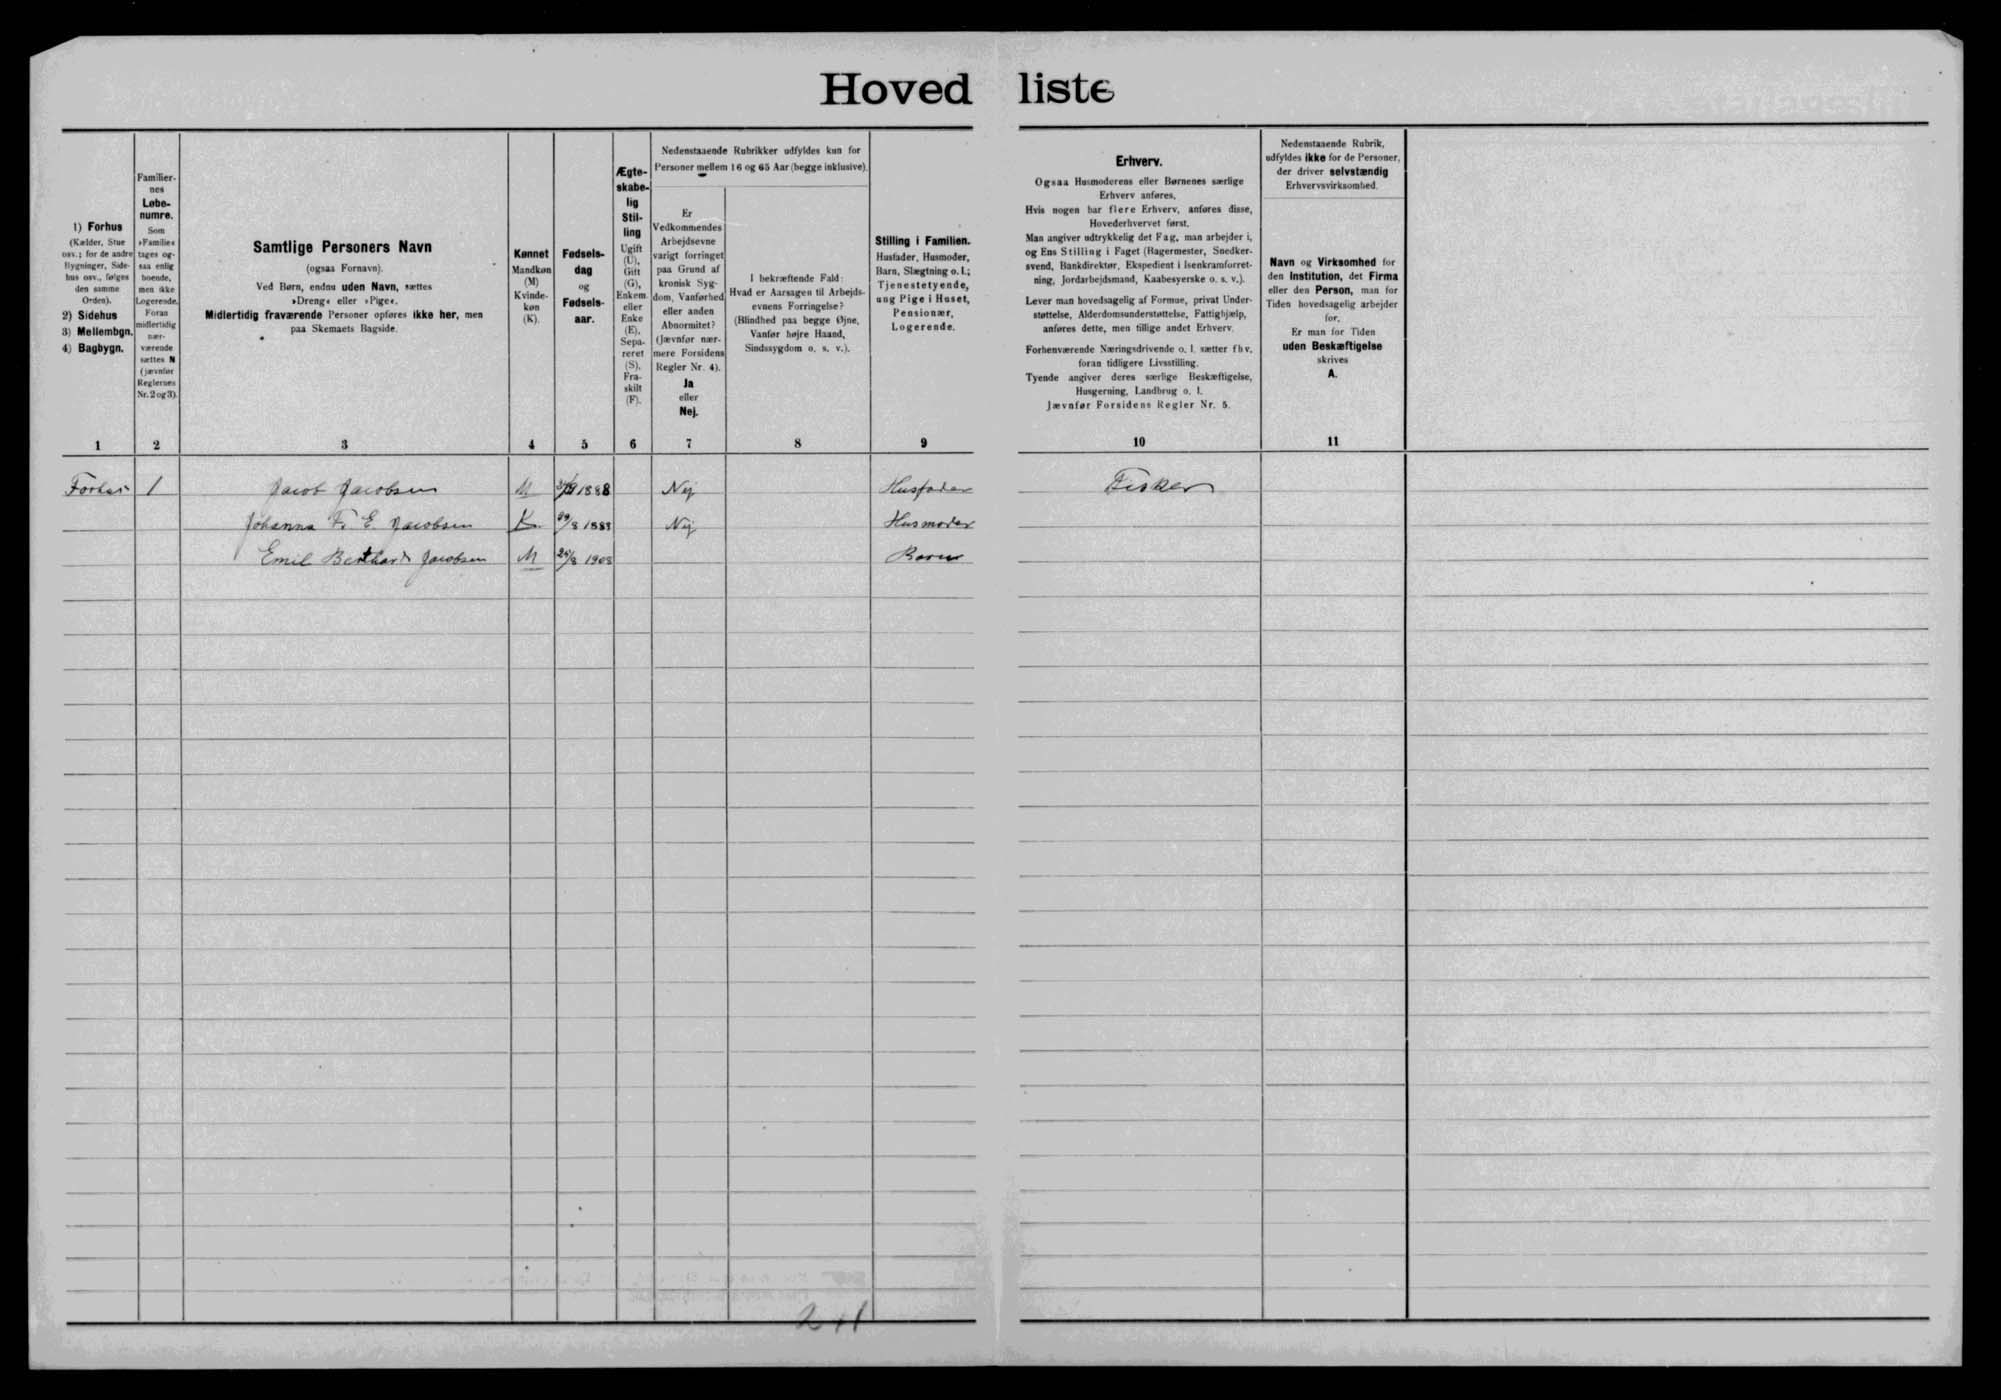 Hovedliste
1) Forhus
(Kælder, Stue
osv.; for de andre
Bygninger, Side-
hus osv., følges
den samme
Orden).
2) Sidehus
3) Mellembgn.
4) Bagbygn.
Familier-
nes
Løbe-
numre.
Som
»Familie«
tages og-
saa enlig
boende,
men ikke
Logerende.
Foran
midlertidig
nær-
værende
sættes N
(jævnfør
Reglernes
Nr. 2 og 3).
Samtlige Personers Navn
(ogsaa Fornavn).
Ved Børn, endnu uden Navn, sættes
»Dreng« eller »Pige«.
Midlertidig fraværende Personer opføres ikke her, men
paa Skemaets Bagside.
Kønnet
Mandkøn
(M)
Kvinde-
køn
(K).
Fødsels-
dag
og
Fødsels-
aar.
Ægte-
skabe-
lig
Stil-
ling
Ugift
(U),
Gift
(G),
Enkem.
eller
Enke
(E),
Sepa-
reret
(S),
Fra-
skilt
(F).
Nedenstaaende Rubrikker udfyldes kun for
Personer mellem 16 og 65 Aar (begge inklusive).
Er
Vedkommendes
Arbejdsevne
varigt forringet
paa Grund af
kronisk Syg-
dom, Vanførhed
eller anden
Abnormitet?
(Jævnfør nær-
mere Forsidens
Regler Nr. 4).
Ja
eller
Nej.
I bekræftende Fald:
Hvad er Aarsagen til Arbejds-
evnens Forringelse?
(Blindhed paa begge Øjne,
Vanfør højre Haand,
Sindssygdom o. s. v.).
Stilling i Familien.
Husfader, Husmoder,
Barn, Slægtning o. l.;
Tjenestetyende,
ung Pige i Huset,
Pensionær,
Logerende.
Erhverv.
Ogsaa Husmoderens eller Børnenes særlige
Erhverv anføres.
Hvis nogen har flere Erhverv, anføres disse,
Hovederhvervet først.
Man angiver udtrykkelig det Fag, man arbejder i,
og Ens Stilling i Faget (Bagermester, Snedker-
svend, Bankdirektør, Ekspedient i Isenkramforret-
ning, Jordarbejdsmand, Kaabesyerske o. s. v.).
Lever man hovedsagelig af Formue, privat Under-
støttelse, Alderdomsunderstøttelse, Fattighjælp,
anføres dette, men tillige andet Erhverv.
Forhenværende Næringsdrivende o. l. sætter fhv.
foran tidligere Livsstilling.
Tyende angiver deres særlige Beskæftigelse,
Husgerning, Landbrug o. l.
Jævnfør Forsidens Regler Nr. 5.
Nedenstaaende Rubrik,
udfyldes ikke for de Personer,
der driver selvstændig
Erhvervsvirksomhed.
Navn og Virksomhed for
den Institution, det Firma
eller den Person, man for
Tiden hovedsagelig arbejder
for.
Er man for Tiden
uden Beskæftigelse
skrives
A.
1 2 3 4 5 6 7 8 9 10 11
Forhus 1 Jacob Jacobsen M 1888 Nej Husfader Fisker
Johanna F. E. Jacobsen K. 29/8 1888 Nej Husmoder
Emil Bernhard Jacobsen M 24/8 1908 Barn
2+1